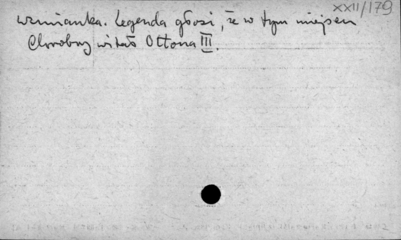 XXII/179
wzmianka. Legenda głosi, że w tym miejscu
Chrobry witał Ottona III.